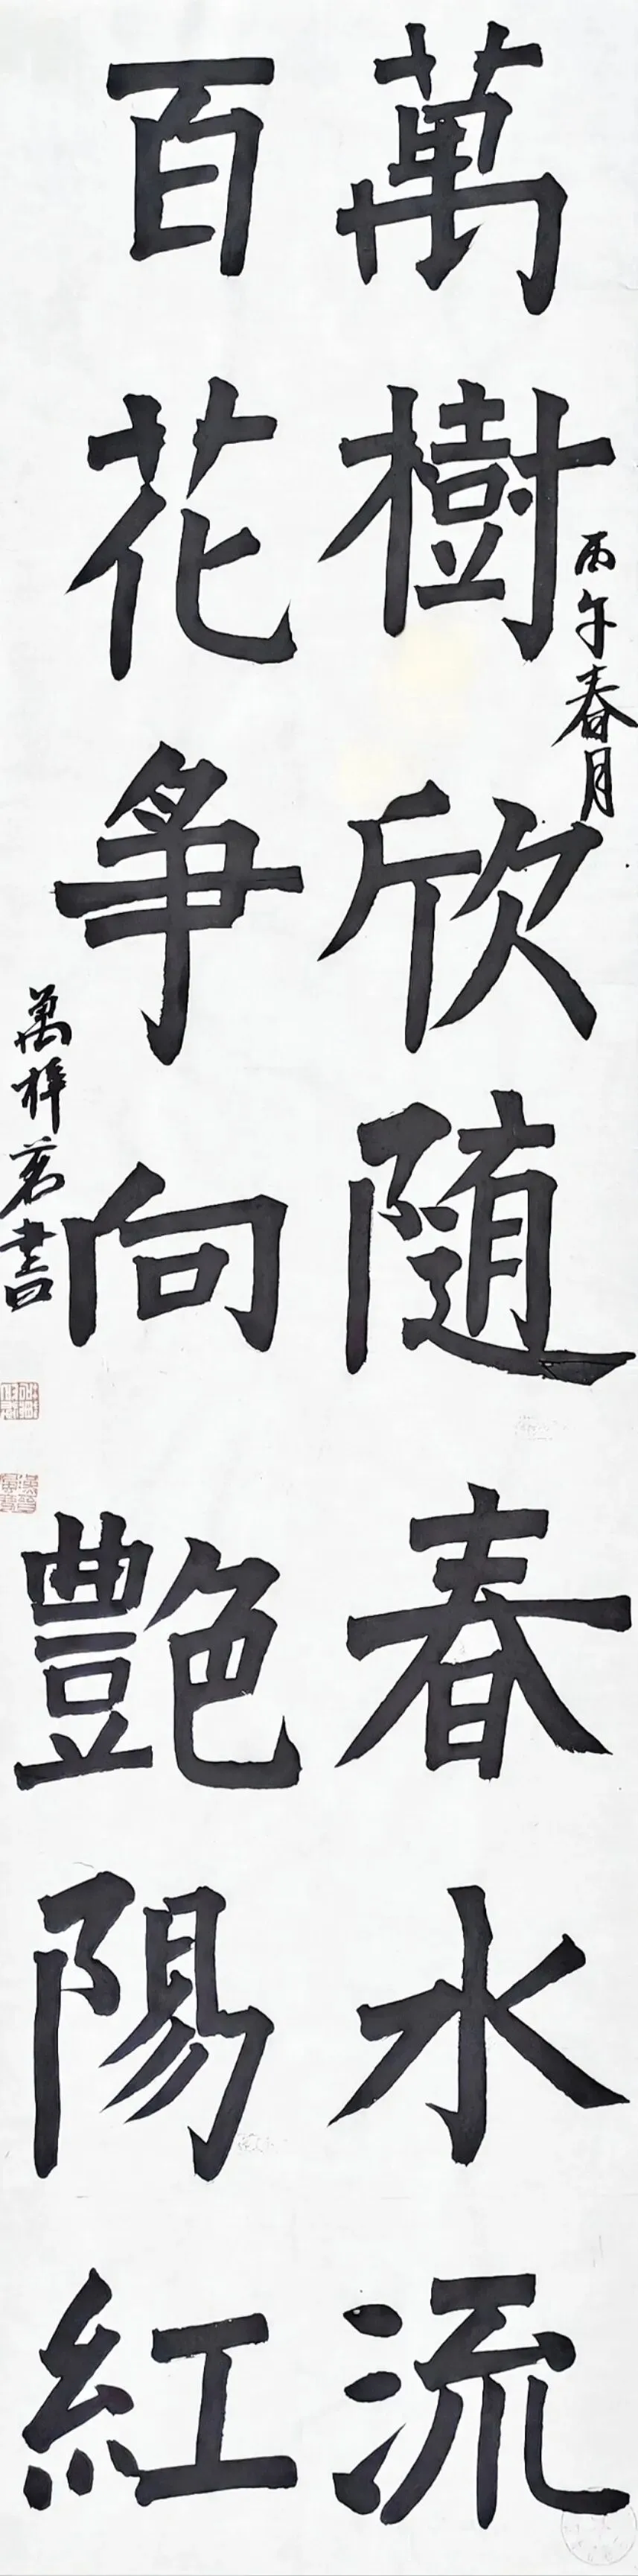 萬樹欣随春水流
丙午春月
百花爭向艷陽紅
萬梓茗書